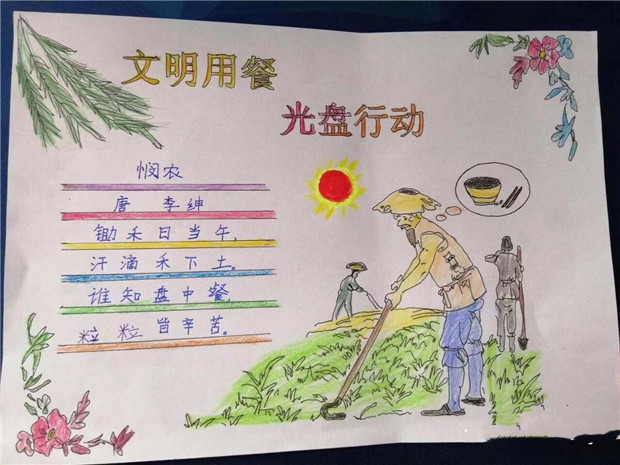 文明用餐
光盘行动
悯农
唐 李绅
锄禾日当午,
汗滴禾下土。
谁知盘中餐,
粒粒皆辛苦。